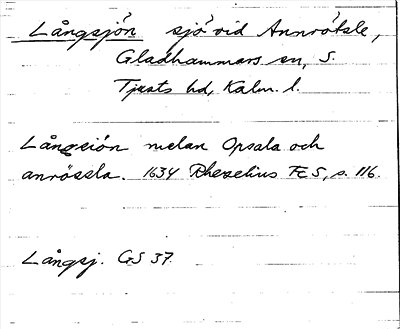 Långsjön sjö vid Annrötsle,
Gladhammars sn, S.
Tjusts hd, Kalm. l.
Långsiön melan Opsala och
anrössla. 1634 Rhezelius FES, s. 116.
Långsj. GS 37.